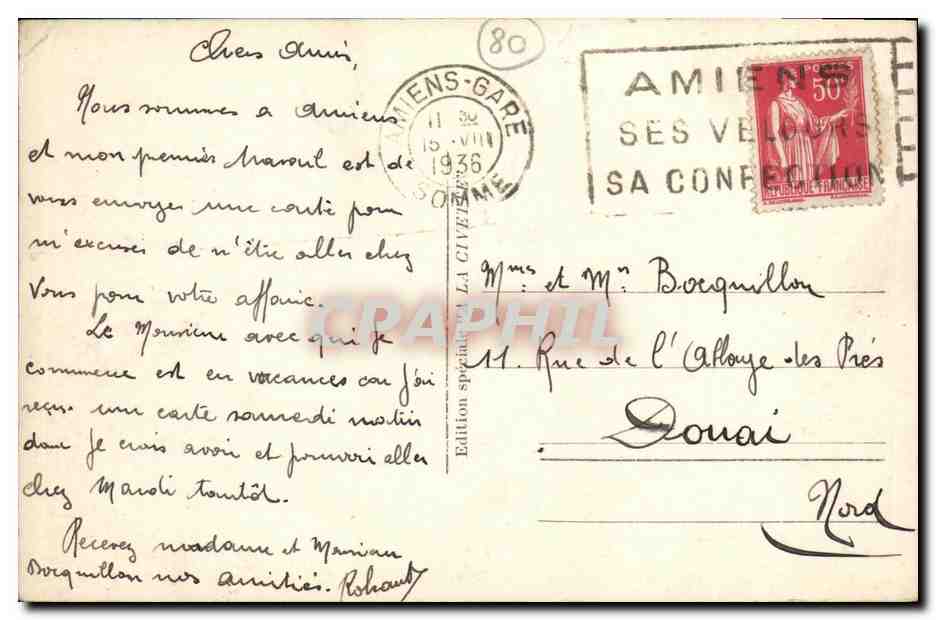 Chers Amis,
Nous sommes a Amiens
et mon premier travail est de
vous envoyer une carte pour
m'excuser de n'être aller chez
Vous pour votre affaire.
Le Monsieur avec qui je
commerce est en vacances car j'ai
reçu une carte samedi matin
donc je crois avoir et pouvoir aller
chez Mardi tantôt.
Recevez madame et Monsieur
Bocquillon nos amitiés.
80
AMIENS-GARE
11 30
15 VIII
1936
SOMME
AMIENS
SES VELOURS
SA CONFECTION
POSTES
50c
REPUBLIQUE FRANCAISE
Edition spéciale "A LA CIVETTE"
CPAPHIL
Mme et Mr Bocquillon
11. Rue de l'Abbaye des Prés
Douai
Nord